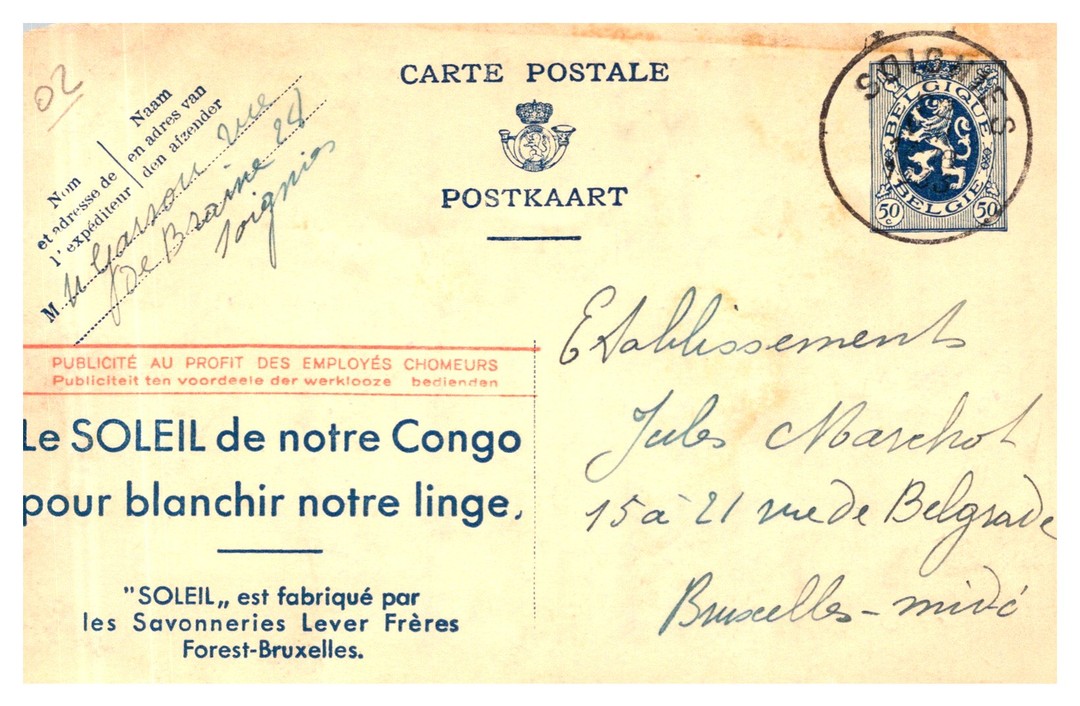 02
CARTE POSTALE
POSTKAART
SOIGNIES
BELGIQUE
BELGIE
50 c 50
Nom
et adresse de
l'expéditeur
Naam
en adres van
den afzender
M
rue
de Braine 28
Soignies
PUBLICITÉ AU PROFIT DES EMPLOYÉS CHOMEURS
Publiciteit ten voordeele der werklooze bedienden
Le SOLEIL de notre Congo
pour blanchir notre linge.
"SOLEIL„ est fabriqué par
les Savonneries Lever Frères
Forest-Bruxelles.
Etablissements
Jules Marchot
15 à 21 rue de Belgrade
Bruxelles-midi